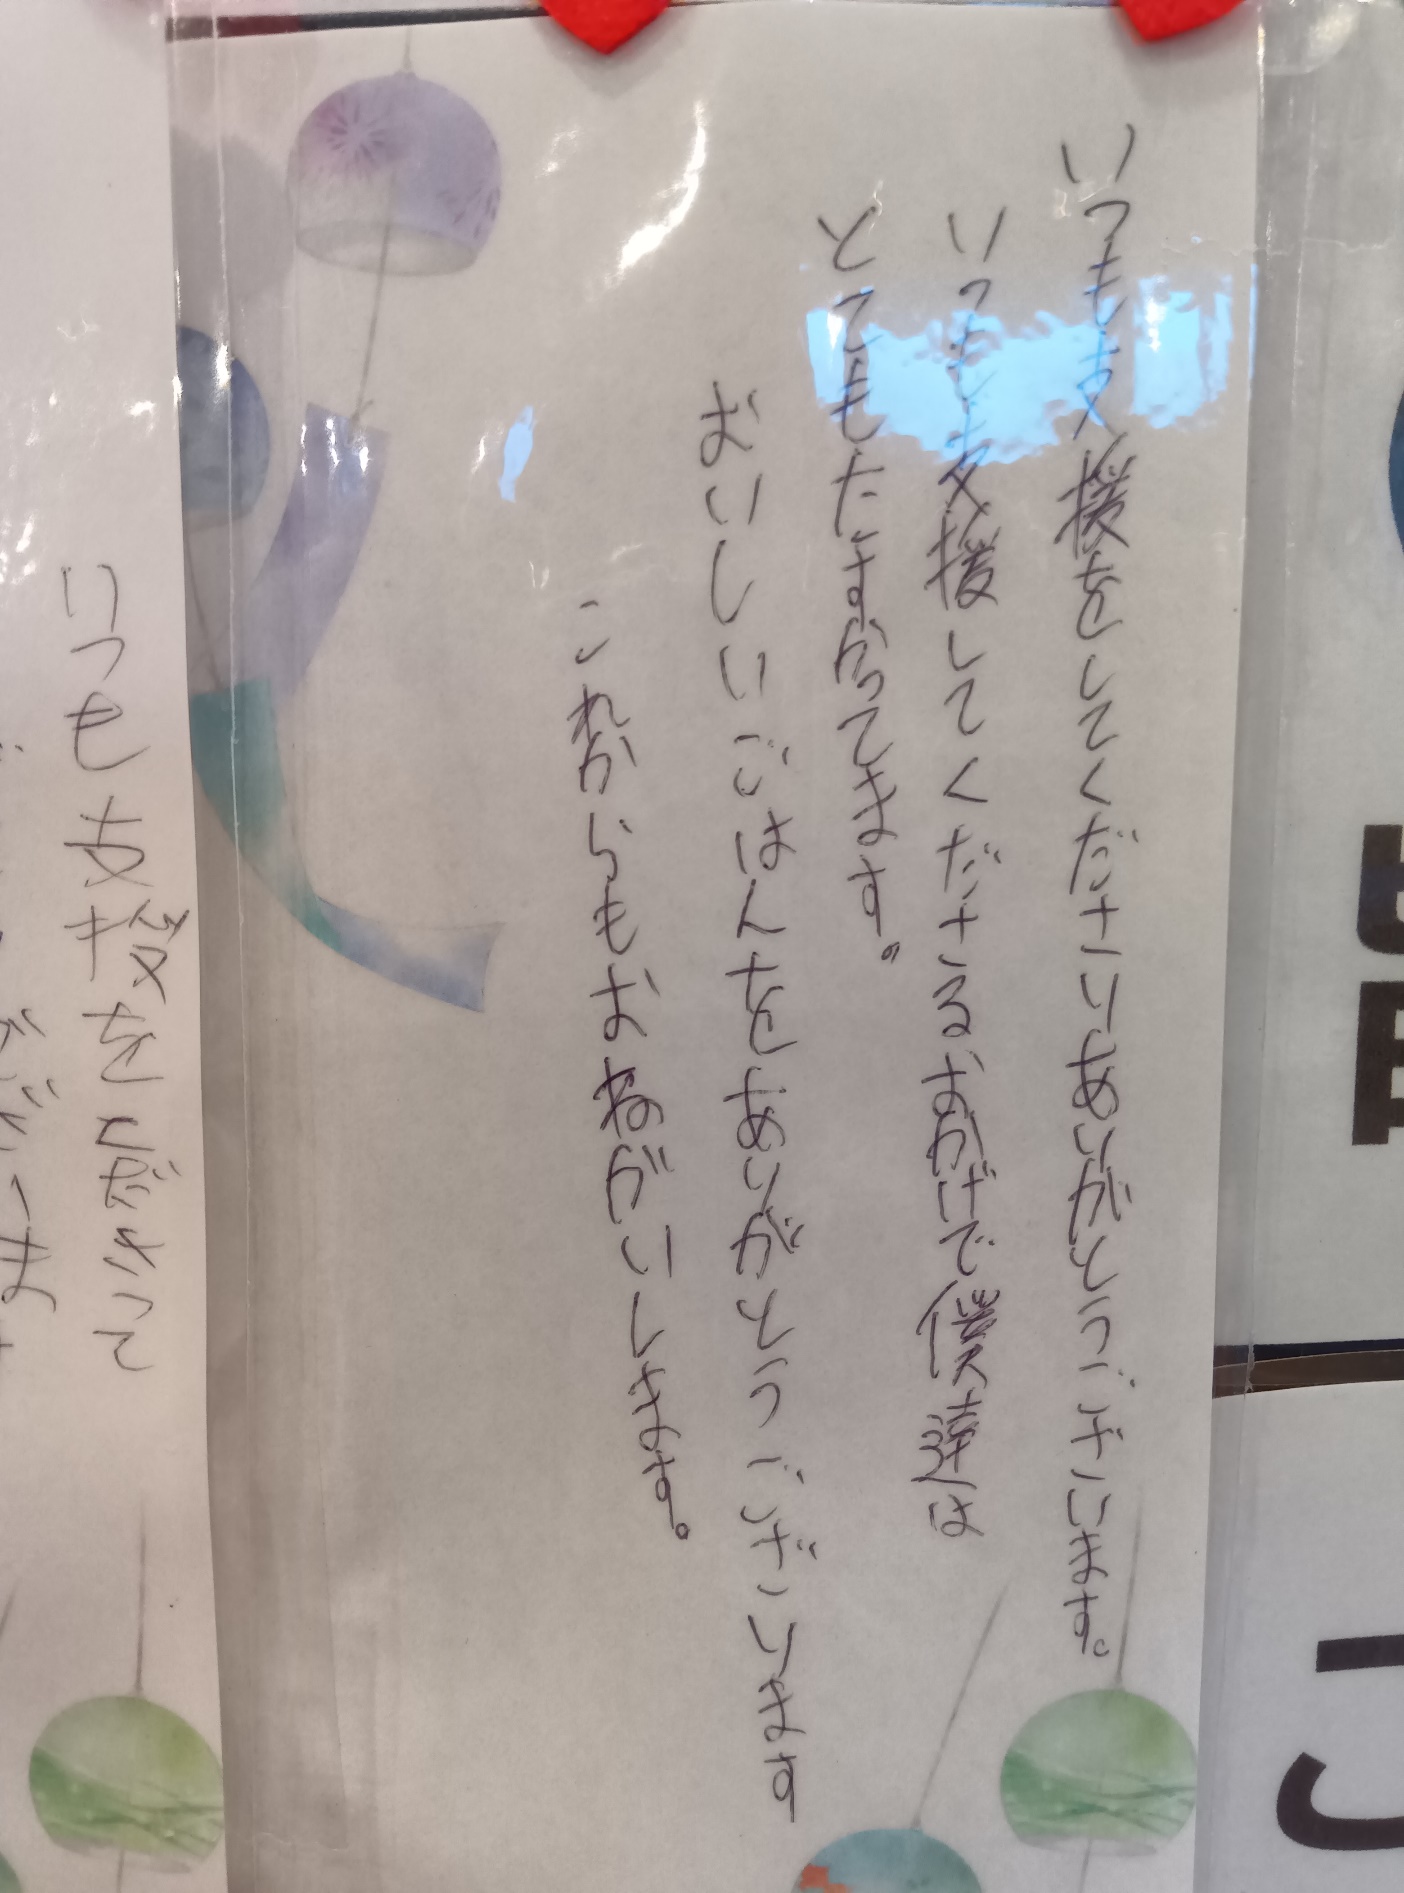 いつも支援をしてくださりありがとうございます。
いつも支援してくださるおかげで僕達は
とてもたすかってます。
おいしいごはんをありがとうございます
これからもおねがいします。
いつも支援を